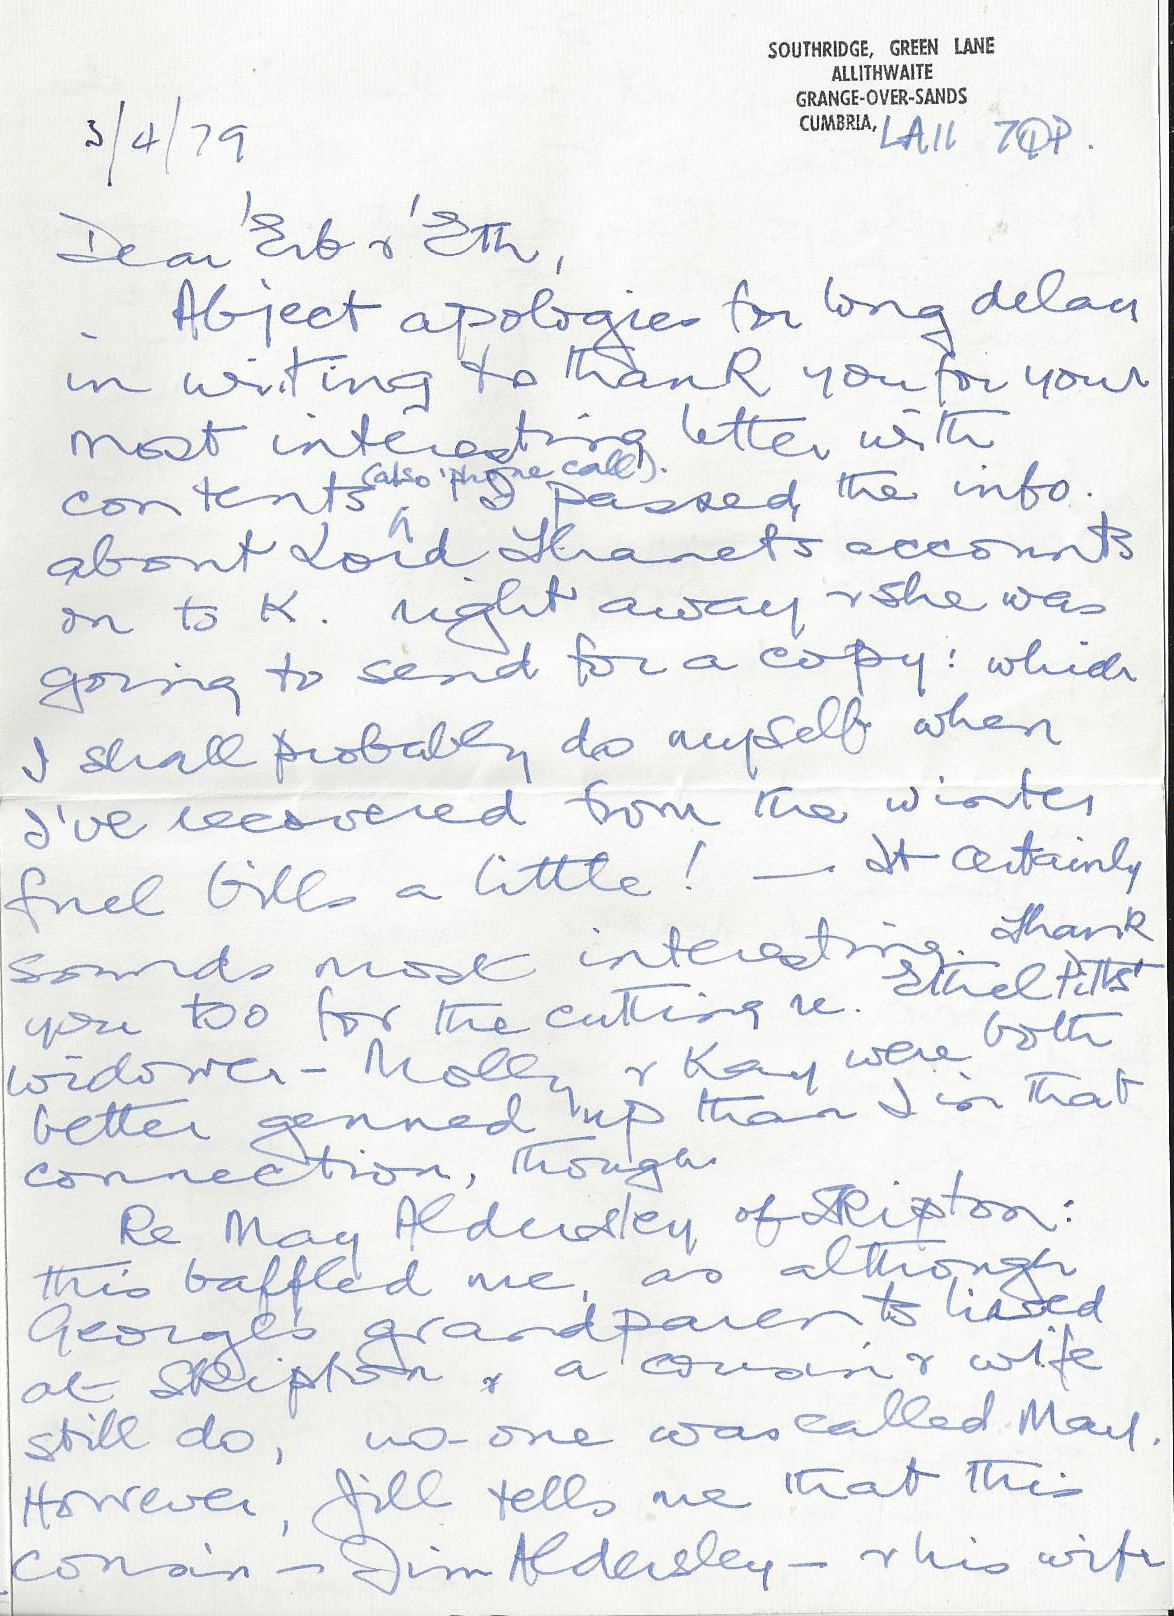 SOUTHRIDGE, GREEN LANE
ALLITHWAITE
GRANGE-OVER-SANDS
CUMBRIA, LA11 7QP.
3/4/79
Dear 'Erb & 'Eth,
Abject apologies for long delay
in writing to thank you for your
most interesting letter with
contents (also 'phone call). I passed the info.
about Lord Thanet's accounts
on to K. right away & she was
going to send for a copy: which
I shall probably do myself when
I've recovered from the winter
fuel bills a little! — It certainly
sounds most interesting. Thank
you too for the cutting re. Ethel Pitts'
widower – Molly & Kay were both
better genned up than I in that
connection, though.
Re May Aldersley of Skipton:
this baffled me, as although
George's grandparents lived
at Skipton & a cousin & wife
still do, no-one was called May.
However, Jill tells me that this
cousin – Jim Aldersley – & his wife